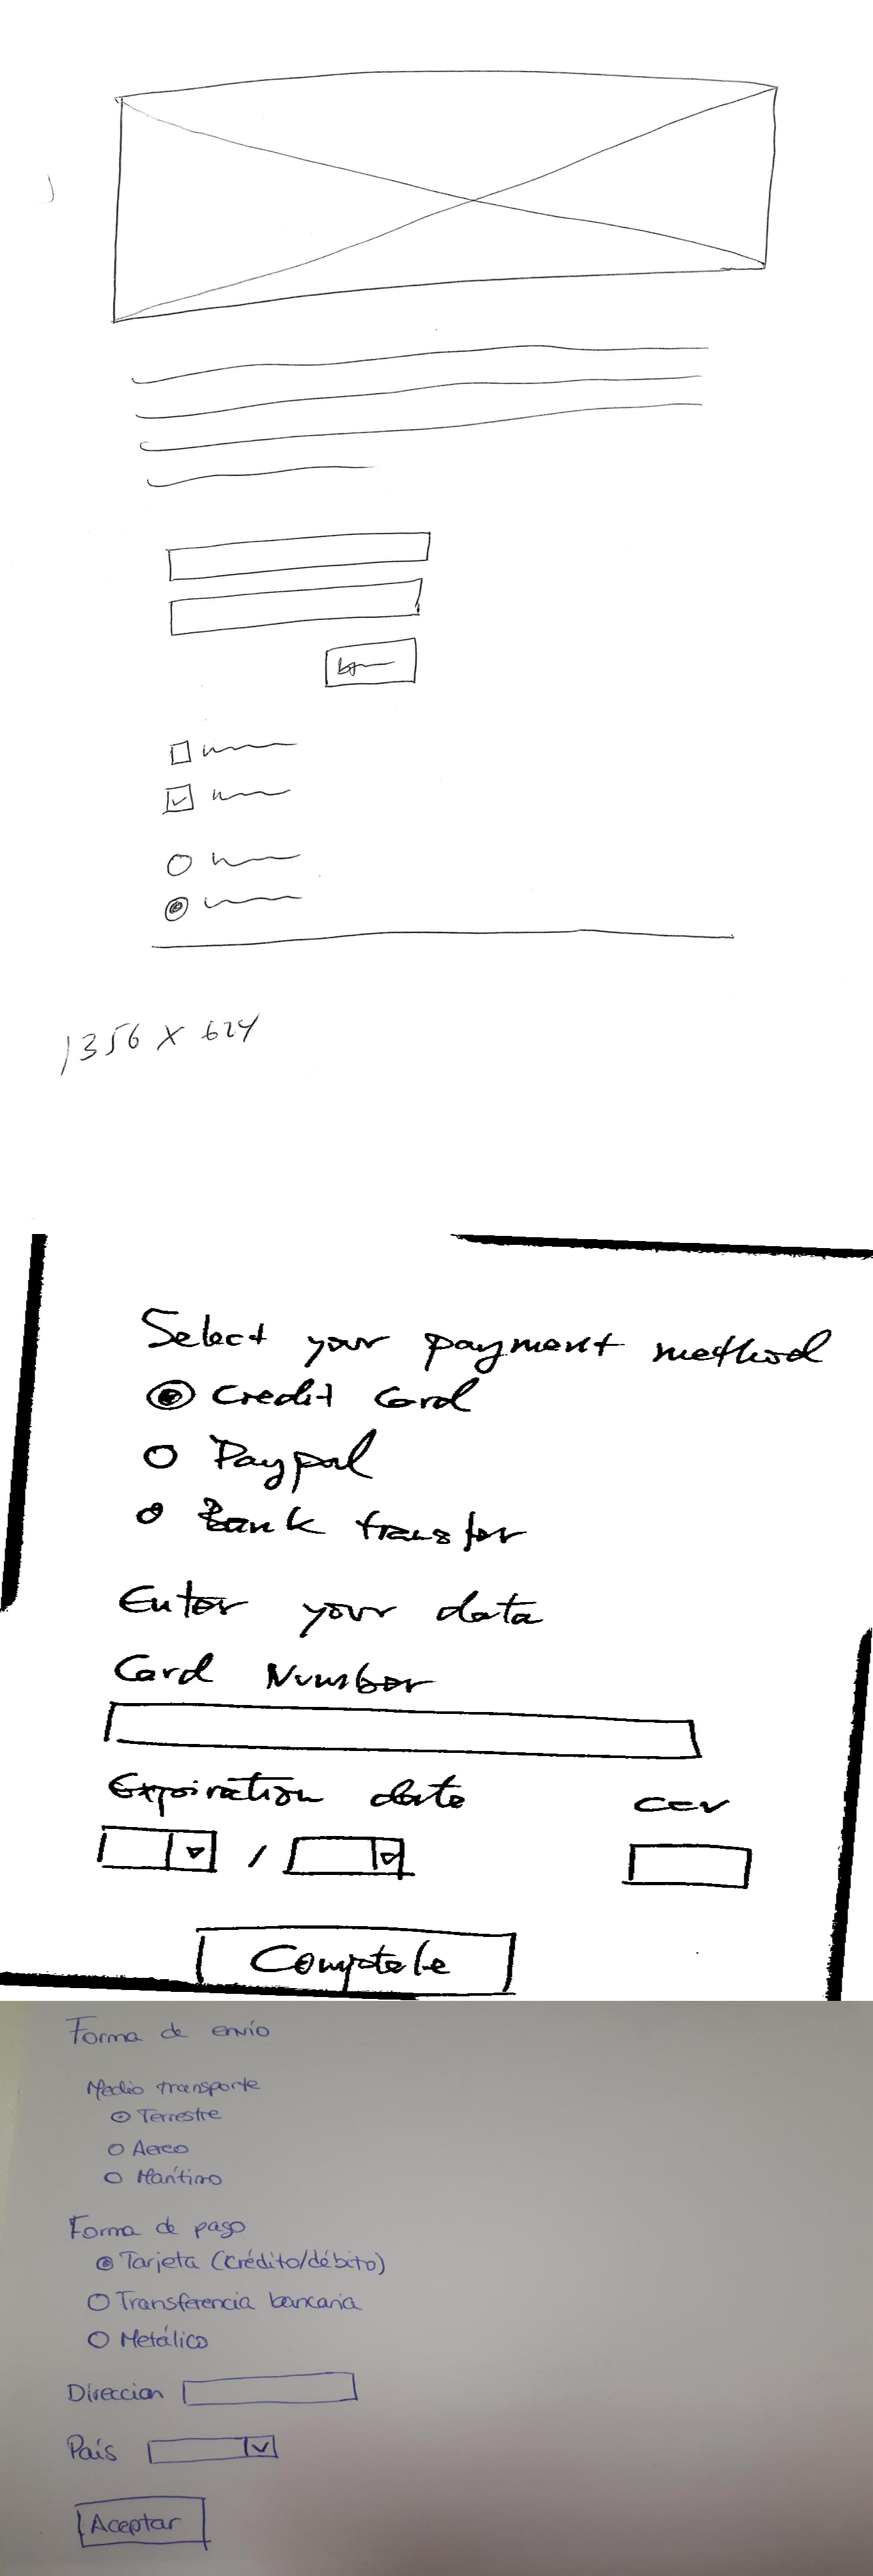 1356 X 624
Select your payment method
Credit Card
Paypal
Bank transfer
Enter your data
Card Number
Expiration date
CCV
/
Complete
Forma de envío
Medio transporte
Terrestre
Aereo
Marítimo
Forma de pago
Tarjeta (crédito/débito)
Transferencia bancaria
Metálico
Direccion
País
Aceptar